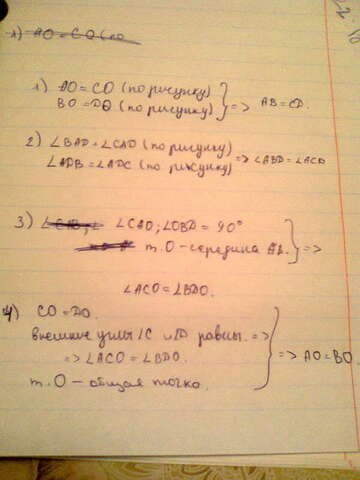 1) AO = CO (по
1) AO = CO (по рисунку)
BO = DO (по рисунку) => AB = CD.
2) ∠BAD = ∠CAD (по рисунку)
∠ADB = ∠ADC (по рисунку) => ∠ABD = ∠ACD
3) ∠CAO; ∠OBD = 90°
т. O - середина AB. =>
∠ACO = ∠BDO.
4) CO = DO.
внешние углы ∠C и ∠D равны. =>
=> ∠ACO = ∠BDO. => AO = BO.
т. O - общая точка.